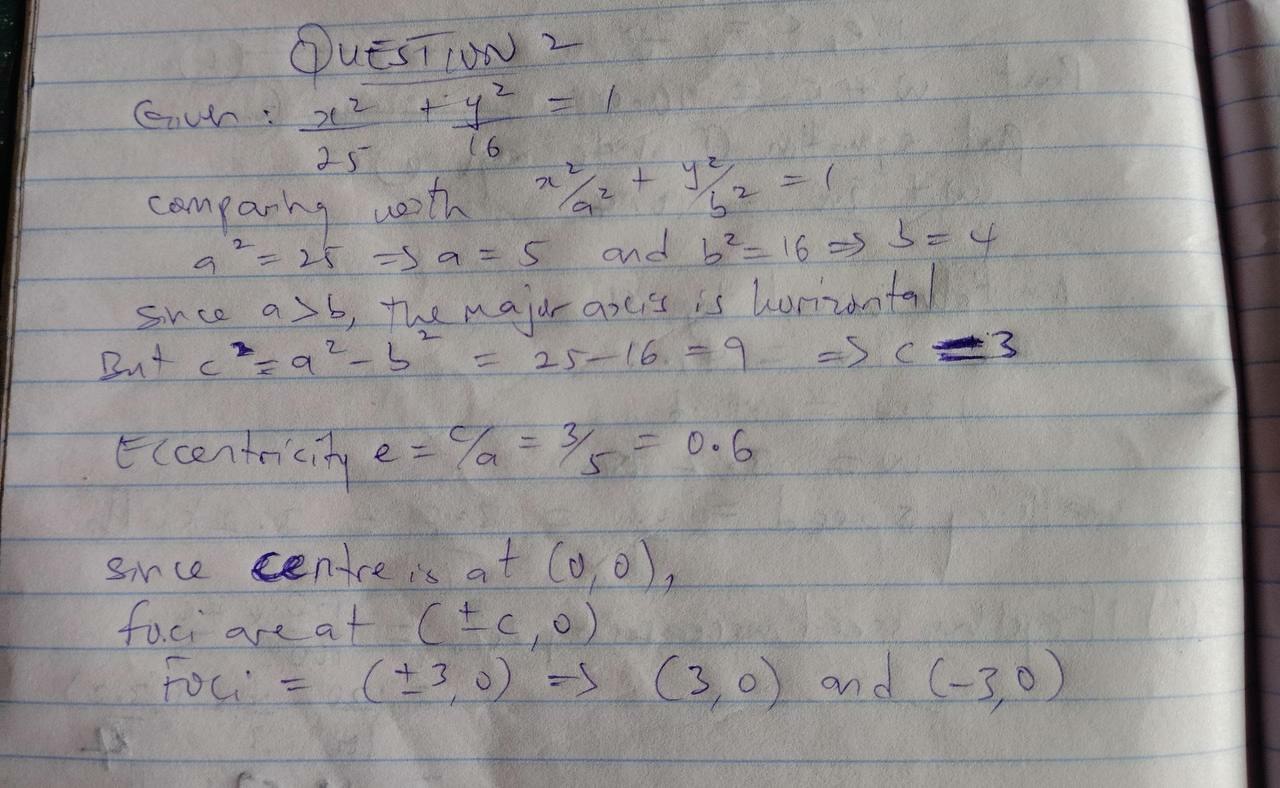 QUESTION 2
Given: x²/25 + y²/16 = 1
comparing with x²/a² + y²/b² = 1
a² = 25 => a = 5 and b² = 16 => b = 4
since a>b, the major axis is horizontal
But c² = a² - b² = 25-16 = 9 => c = 3
Eccentricity e = c/a = 3/5 = 0.6
since centre is at (0,0),
foci are at (±c,0)
Foci = (±3,0) => (3,0) and (-3,0)